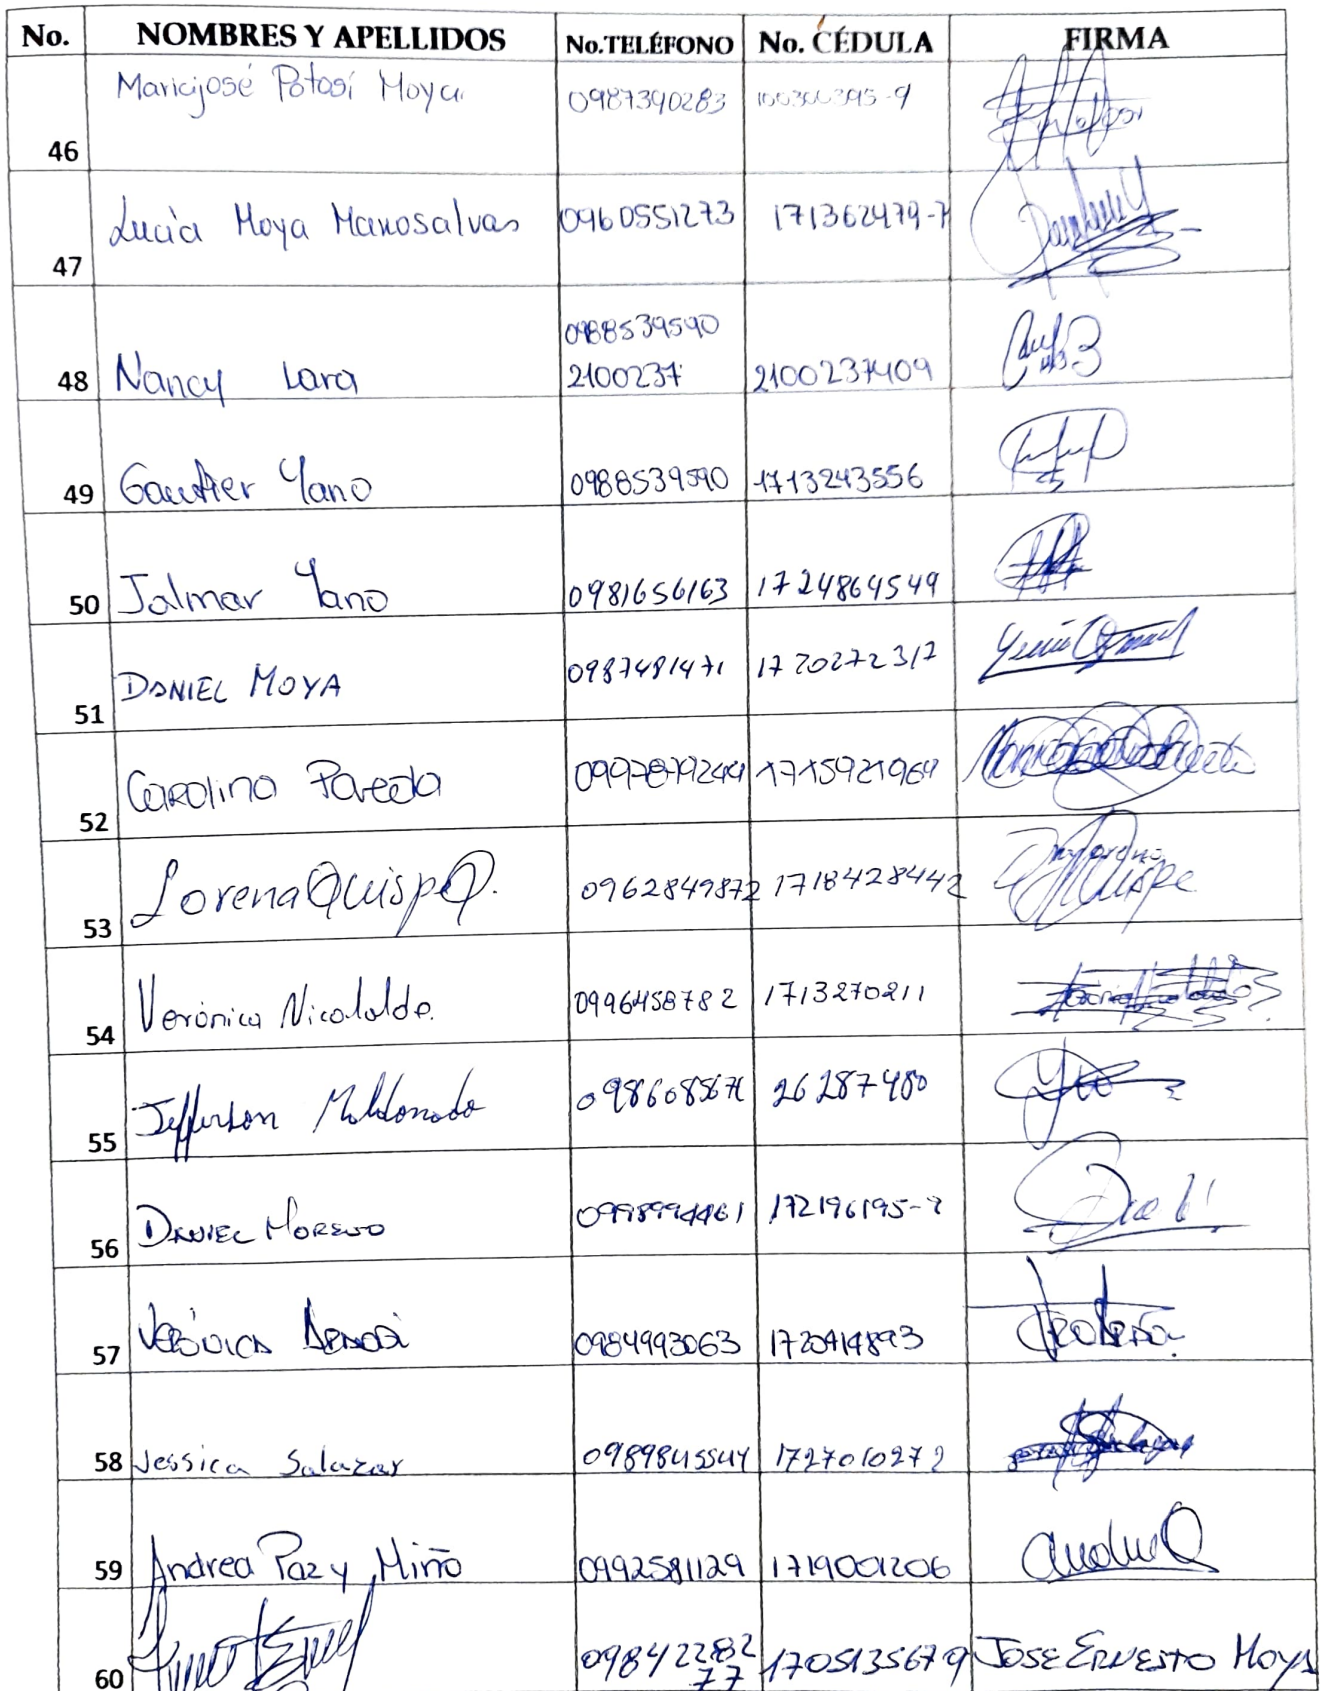 No. NOMBRES Y APELLIDOS No.TELÉFONO No. CÉDULA FIRMA
46 Mariajosé Potosí Moya 0987390283
47 Lucia Moya Manosalvas 0960551273 171362479-7
0988539590
48 Nancy Lara 2100237 2100237409
49 Gautier Yano 0988539590 1713243556
50 Jalmar Yano 0981656163 1724864549
51 DANIEL MOYA 0987481471 1720272317
52 Carolina Pareda 1715921969
53 Lorena Quispe Q. 0962849872 1718428442
54 Verónica Nicolalde. 0996458782 1713270211
55 Jefferson Maldonado 26287480
56 DANIEL MORENO
57 VERÓNICA 0984993063
58 Jessica Salazar 1727010272
59 Andrea Paz y Miño 0992581129 1719001206
60 09842282 1705135679 JOSE ERNESTO MOYA
77